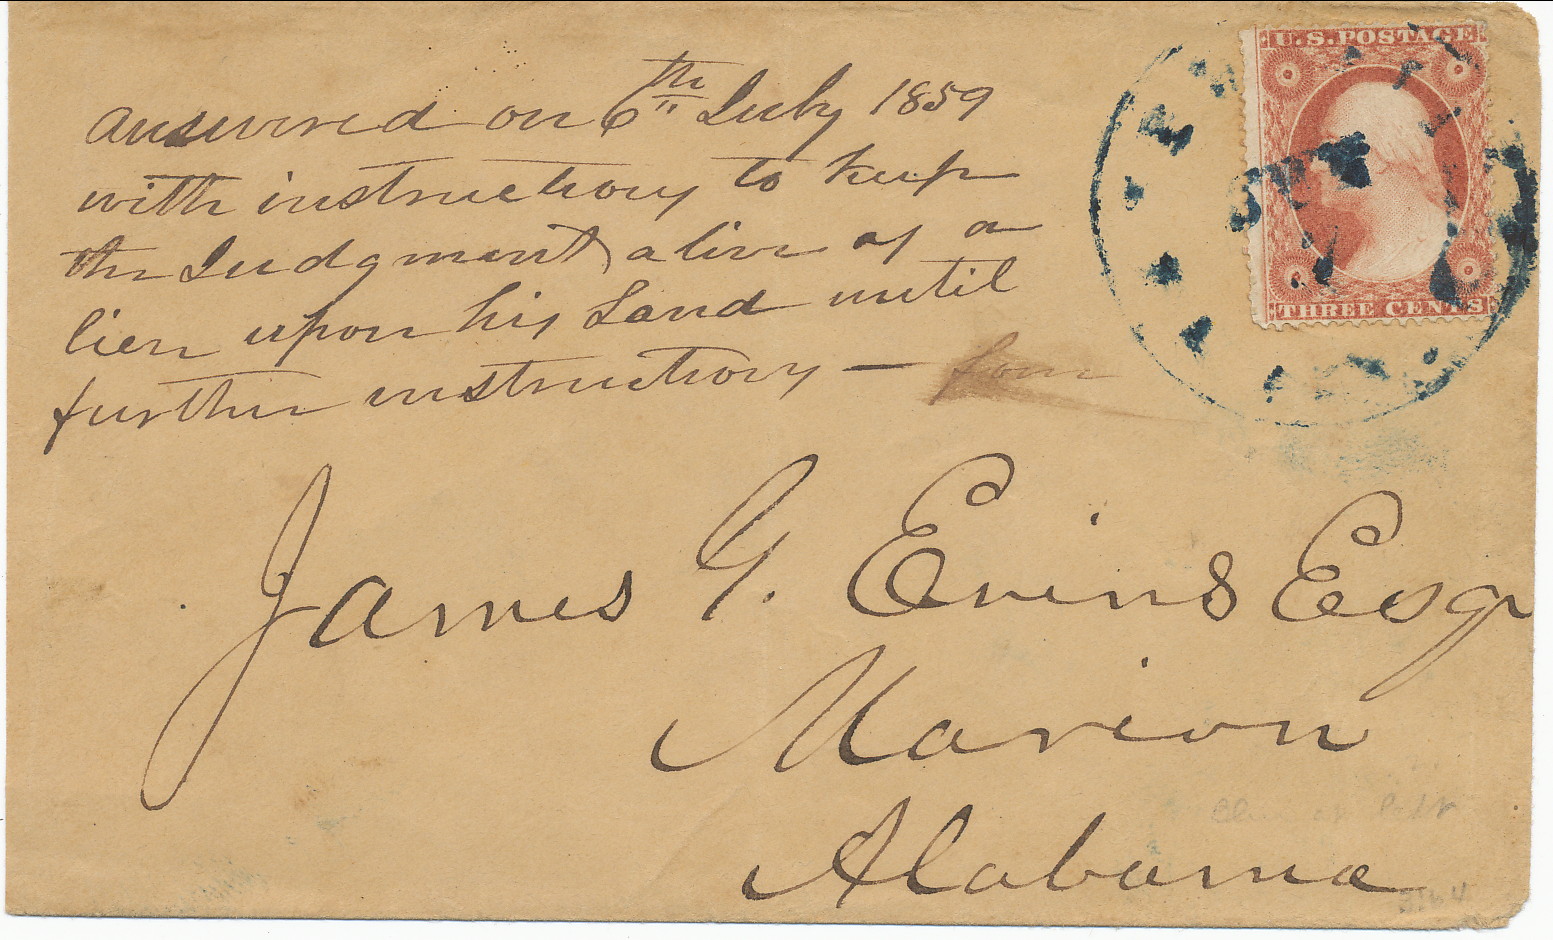 answered on 6th July 1859
with instructions to keep
the Judgment alive as a
lien upon his Land until
further instructions —
U.S. POSTAGE
THREE CENTS
James G. Evins Esqr
Marion
Alabama